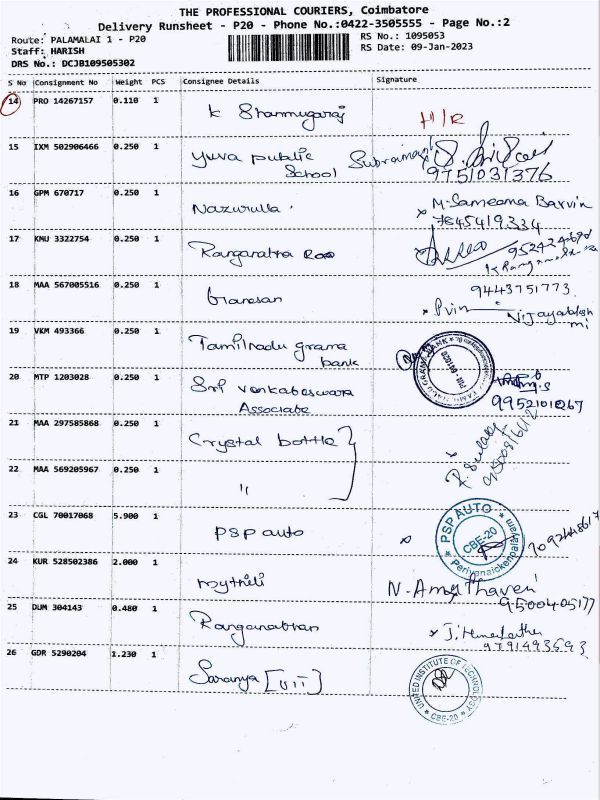 THE PROFESSIONAL COURIERS, Coimbatore
Delivery Runsheet - P20 - Phone No.:0422-3505555 - Page No.:2
Route: PALAMALAI 1 - P20
RS No.: 1095053
Staff: HARISH
RS Date: 09-Jan-2023
DRS No.: DCJB109505302
S No Consignment No Weight PCS Consignee Details Signature
14 PRO 14267157 0.110 1 K Shanmugaraj
15 IXM 502906466 0.250 1 Yuva public School Subramani
9751031376
16 GPM 670717 0.250 1 Nazurulla M. Sameema
7845419334
17 KMU 3322754 0.250 1
18 MAA 567005516 0.250 1 Ganesan
9443751773
19 VKM 493366 0.250 1 Tamilnadu grama
bank
20 MTP 1203028 0.250 1 Sri venkateswara
Associate
9952101067
21 MAA 297585868 0.250 1 Crystal bottle
22 MAA 569205967 0.250 1 "
23 CGL 70017068 5.900 1 PSP auto
PSP AUTO
CBE-20
Periyanaickenpalayam
24 KUR 528502386 2.000 1 Mythili
9500405177
25 DUM 304143 0.480 1 Ranganathan
9791493593
26 GDR 5290204 1.230 1 Saranya [UIT]
UNITED INSTITUTE OF TECHNOLOGY
CBE-20